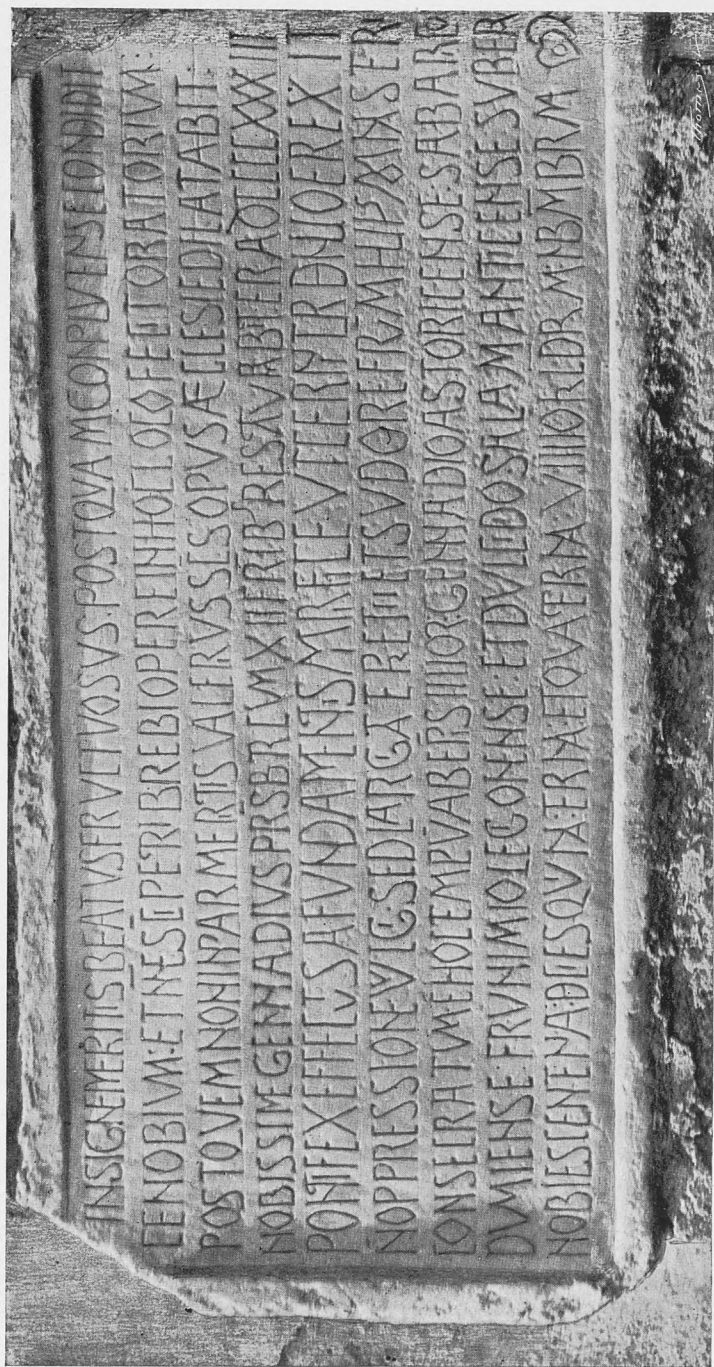 INSIGNE MERITIS BEATVS FRVCTVOSVS·POSTQVAM CONPLVTENSE CONDIDIT
CENOBIVM·ET NNE SCI PETRI BREBI OPERE IN HOC LOCO FECIT ORATORIVM:
POST QVEM NON INPAR MERITIS VALERIVS SCS OPVS ÆCLESIE DILATABIT·
NOBISSIME GENNADIVS PRSBTR CVM XII FRIB RESTAVRABIT ERA DCCCCXXXIII
PONTIFEX EFFECTVS A FVNDAMENTIS MIRIFICE VT CERNITVR DENVO EREXIT
N OPPRESSIONE VVLGI SED LARGITATE PRETII ET SVDORE FRVM HVIVS MONASTERI
CONSECRATVM E HOC TEMPLVM AB EPS IIII OR GENNADIO ASTORICENSE·SABARICO
DVMIENSE·FRVNIMIO LEGIONENSE·ET DVLCIDIO SALAMANTICENSE SVB ERA
NOBIES CENTENA·DECIES QVINA·TERNA·ET QVATERNA·VIIII KLDRM NBMBRM